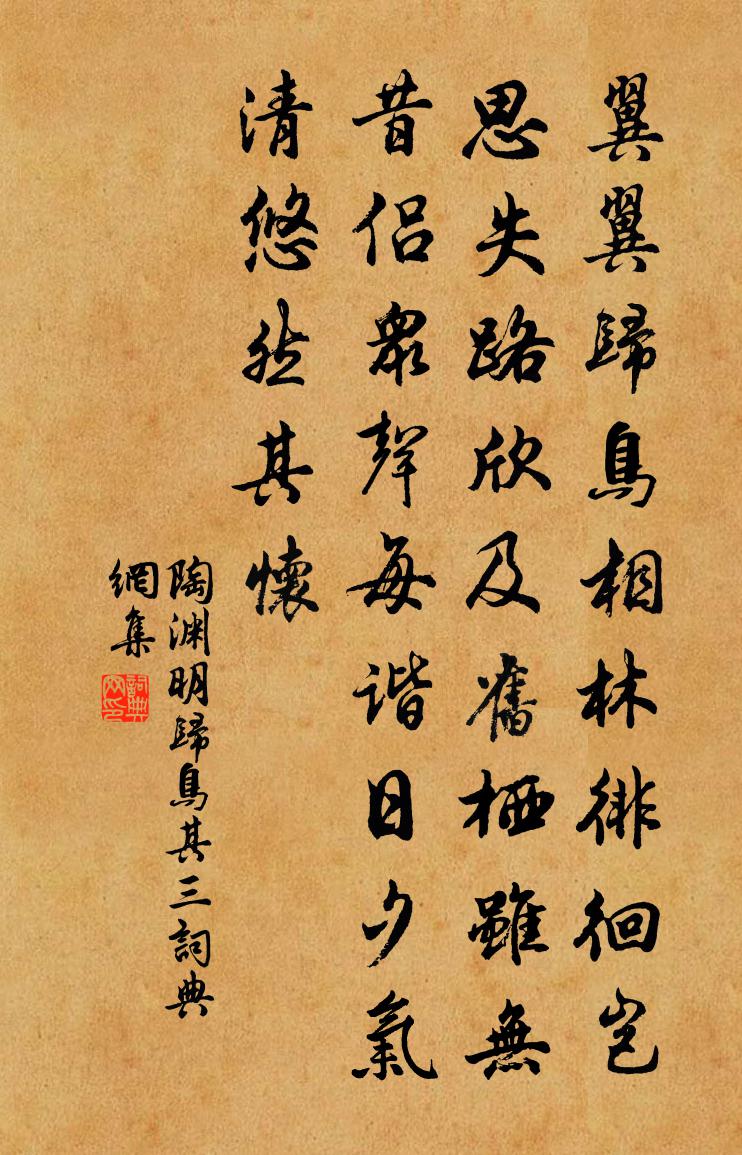 翼翼歸鳥相林徘徊豈
思失路欣及舊栖雖無
昔侶眾聲每諧日夕氣
清悠然其懷
陶淵明歸鳥其三詞典
網集
詞典
网印